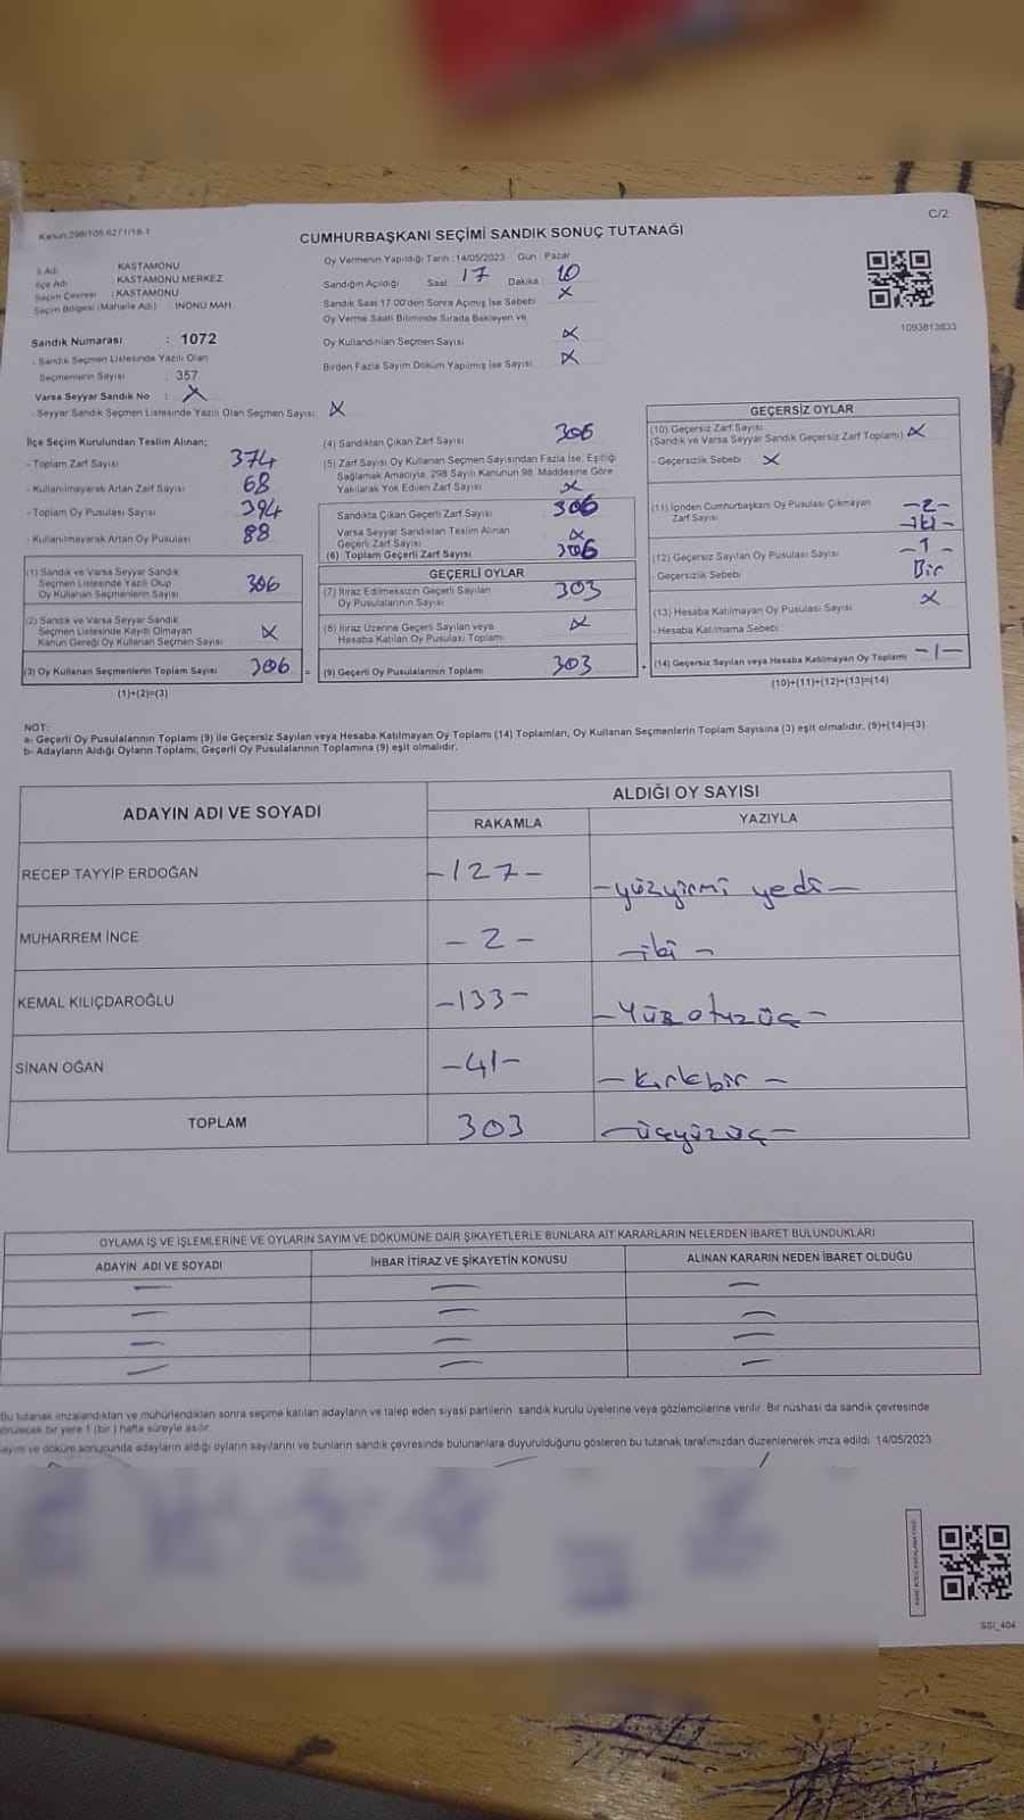 C/2
CUMHURBAŞKANI SEÇİMİ SANDIK SONUÇ TUTANAĞI
İl Adı : KASTAMONU
İlçe Adı : KASTAMONU MERKEZ
Seçim Çevresi : KASTAMONU
Seçim Bölgesi (Mahalle Adı) : İNÖNÜ MAH.
Oy Vermenin Yapıldığı Tarih : 14/05/2023 Gün : Pazar
Sandığın Açıldığı Saat 17 Dakika : 10
Sandık Saat 17:00'den Sonra Açılmış İse Sebebi X
Oy Verme Saati Bitiminde Sırada Bekleyen ve
Oy Kullandırılan Seçmen Sayısı X
Birden Fazla Sayım Döküm Yapılmış İse Sayısı X
1093813833
Sandık Numarası : 1072
- Sandık Seçmen Listesinde Yazılı Olan
Seçmenlerin Sayısı : 357
Varsa Seyyar Sandık No : X
- Seyyar Sandık Seçmen Listesinde Yazılı Olan Seçmen Sayısı: X
İlçe Seçim Kurulundan Teslim Alınan;
- Toplam Zarf Sayısı 374
- Kullanılmayarak Artan Zarf Sayısı 68
- Toplam Oy Pusulası Sayısı 394
- Kullanılmayarak Artan Oy Pusulası 88
(1) Sandık ve Varsa Seyyar Sandık
Seçmen Listesinde Yazılı Olup
Oy Kullanan Seçmenlerin Sayısı 306
(2) Sandık ve Varsa Seyyar Sandık
Seçmen Listesinde Kayıtlı Olmayan
Kanun Gereği Oy Kullanan Seçmen Sayısı X
(3) Oy Kullanan Seçmenlerin Toplam Sayısı 306 =
(1)+(2)=(3)
(4) Sandıktan Çıkan Zarf Sayısı 306
(5) Zarf Sayısı Oy Kullanan Seçmen Sayısından Fazla İse, Eşitliği
Sağlamak Amacıyla, 298 Sayılı Kanunun 98. Maddesine Göre
Yakılarak Yok Edilen Zarf Sayısı X
Sandıkta Çıkan Geçerli Zarf Sayısı 306
Varsa Seyyar Sandıktan Teslim Alınan
Geçerli Zarf Sayısı X
(6) Toplam Geçerli Zarf Sayısı 306
GEÇERLİ OYLAR
(7) İtiraz Edilmeksizin Geçerli Sayılan
Oy Pusulalarının Sayısı 303
(8) İtiraz Üzerine Geçerli Sayılan veya
Hesaba Katılan Oy Pusulası Toplamı X
(9) Geçerli Oy Pusulalarının Toplamı 303 +
GEÇERSİZ OYLAR
(10) Geçersiz Zarf Sayısı
(Sandık ve Varsa Seyyar Sandık Geçersiz Zarf Toplamı) X
- Geçersizlik Sebebi X
(11) İçinden Cumhurbaşkanı Oy Pusulası Çıkmayan
Zarf Sayısı -2-
-iki-
(12) Geçersiz Sayılan Oy Pusulası Sayısı -1-
- Geçersizlik Sebebi Bir
(13) Hesaba Katılmayan Oy Pusulası Sayısı X
- Hesaba Katılmama Sebebi
(14) Geçersiz Sayılan veya Hesaba Katılmayan Oy Toplamı -1-
(10)+(11)+(12)+(13)=(14)
NOT:
a- Geçerli Oy Pusulalarının Toplamı (9) ile Geçersiz Sayılan veya Hesaba Katılmayan Oy Toplamı (14) Toplamları, Oy Kullanan Seçmenlerin Toplam Sayısına (3) eşit olmalıdır. (9)+(14)=(3)
b- Adayların Aldığı Oyların Toplamı, Geçerli Oy Pusulalarının Toplamına (9) eşit olmalıdır.
ADAYIN ADI VE SOYADI
ALDIĞI OY SAYISI
RAKAMLA YAZIYLA
RECEP TAYYİP ERDOĞAN -127- -yüzyirmi yedi-
MUHARREM İNCE -2- -iki-
KEMAL KILIÇDAROĞLU -133- -Yüzotuzüç-
SİNAN OĞAN -41- -Kırkbir-
TOPLAM 303 -üçyüzüç-
OYLAMA İŞ VE İŞLEMLERİNE VE OYLARIN SAYIM VE DÖKÜMÜNE DAİR ŞİKAYETLERLE BUNLARA AİT KARARLARIN NELERDEN İBARET BULUNDUKLARI
ADAYIN ADI VE SOYADI İHBAR İTİRAZ VE ŞİKAYETİN KONUSU ALINAN KARARIN NEDEN İBARET OLDUĞU
Bu tutanak imzalandıktan ve mühürlendikten sonra seçime katılan adayların ve talep eden siyasi partilerin sandık kurulu üyelerine veya gözlemcilerine verilir. Bir nüshası da sandık çevresinde
bir yere 1 (bir) hafta süreyle asılır.
Sayım ve döküm sonucunda adayların aldığı oyların sayılarını ve bunların sandık çevresinde bulunanlara duyurulduğunu gösteren bu tutanak tarafımızdan düzenlenerek imza edildi. 14/05/2023
SSI_404